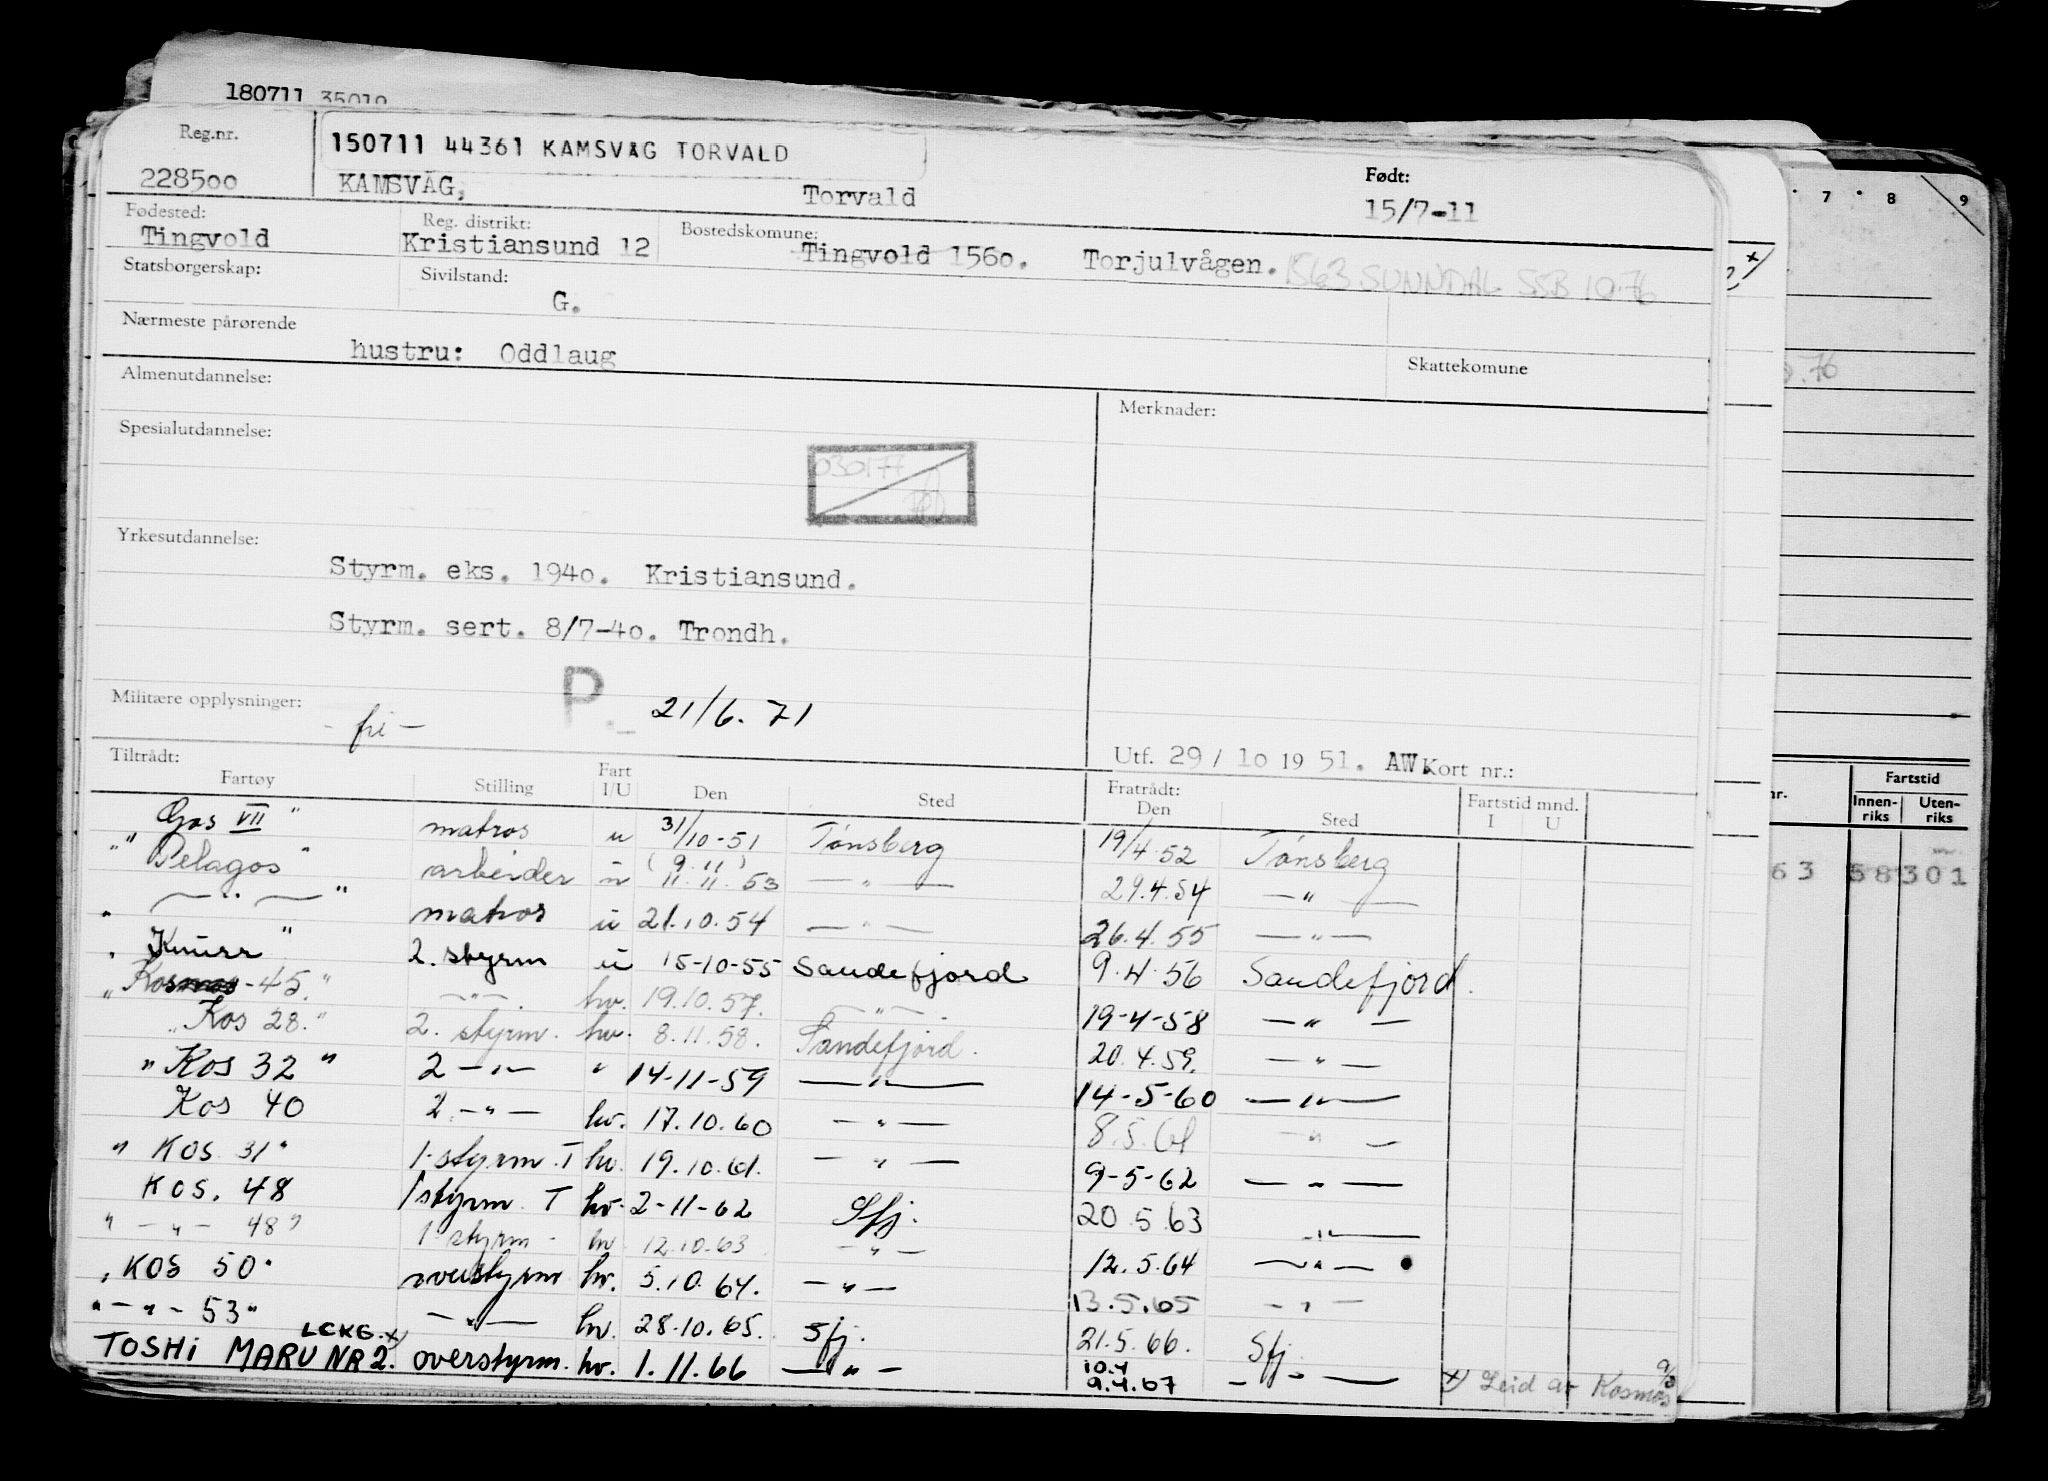 180711 35019
Reg.nr. 150711 44361 KAMSVÅG TORVALD
228500 KAMSVÅG, Torvald Født: 15/7-11
Fødested: Tingvold Reg. distrikt: Kristiansund 12 Bostedskomune: Tingvold 1560. Torjulvågen. 1563 SUNNDAL SSB 10.76
Statsborgerskap: Sivilstand: G.
Nærmeste pårørende hustru: Oddlaug Skattekomune
Almenutdannelse: Merknader:
Spesialutdannelse:
030177
Yrkesutdannelse:
Styrm. eks. 1940. Kristiansund.
Styrm. sert. 8/7-40. Trondh.
Militære opplysninger: - fri - P. 21/6.71
Utf. 29/10 1951. AW. Kort nr.:
Tiltrådt: Fratrådt:
Fartøy Stilling Fart I/U Den Sted Den Sted Fartstid mnd. I U
Gos VII " matros u 31/10-51 Tønsberg 19/4.52 Tønsberg
" Pelagos " arbeider u (9.11) 11.11.53 — " — 29.4.54 — " —
— " — " matros u 21.10.54 — " — 26.4.55 — " —
" Knurr " 2. styrm u 15-10-55 Sandefjord 9.4.56 Sandefjord.
" Kosmos -45." — " —. hv. 19.10.57. — " —. 19-4-58 — " —
" Kos 28." 2. styrm. hv. 8.11.58. Sandefjord. 20.4.59. — " —
" Kos 32 " 2 — " — " 14-11-59 — " — 14-5-60 — " —
Kos 40 2. — " — hv. 17.10.60 — " — 8.5.61 — " —
" KOS 31" 1. styrm. T hv. 19.10.61. — " — 9-5-62 — " —
KOS. 48 1 styrm. T hv. 2-11-62 Sfj. 20.5.63 — " —
" — " — 48" 1. styrm. hv 12.10.63 — " — 12.5.64 — " —
" KOS 50" overstyrm hv. 5.10.64. — " — 13.5.65 — " —
" — " — 53" — " — hv. 28.10.65. Sfj. 21.5.66. Sfj.
TOSHI MARU NR 2. LCKG. x) overstyrm. hv. 1.11.66 — " — 10.4 9.4.67 — " — x) Leid av Kosmos
7 8 9
.76
nr. Fartstid
Innen-riks Uten-riks
63 58301